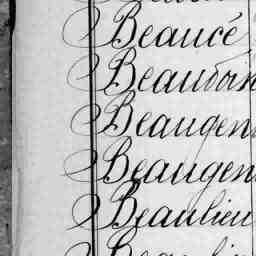 Beaucé
Beaudoin
Beaugen
Beaugen
Beaulieu